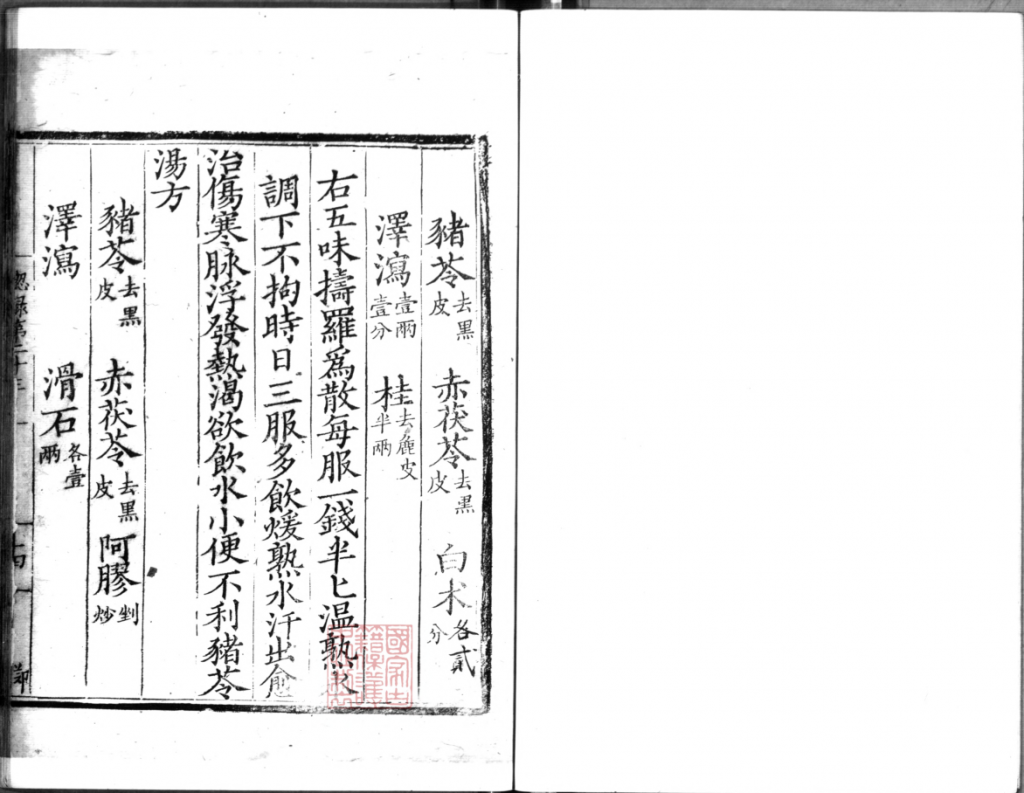 豬苓去黑皮 赤茯苓去黑皮 白术各貳分
澤瀉壹兩壹分 桂去麁皮半兩
右五味擣羅爲散每服一錢半匕温熟水
調下不拘時日三服多飲煖熟水汗出愈
治傷寒脉浮發熱渴欲飲水小便不利豬苓
湯方
豬苓去黑皮 赤茯苓去黑皮 阿膠剉炒
澤瀉 滑石各壹兩